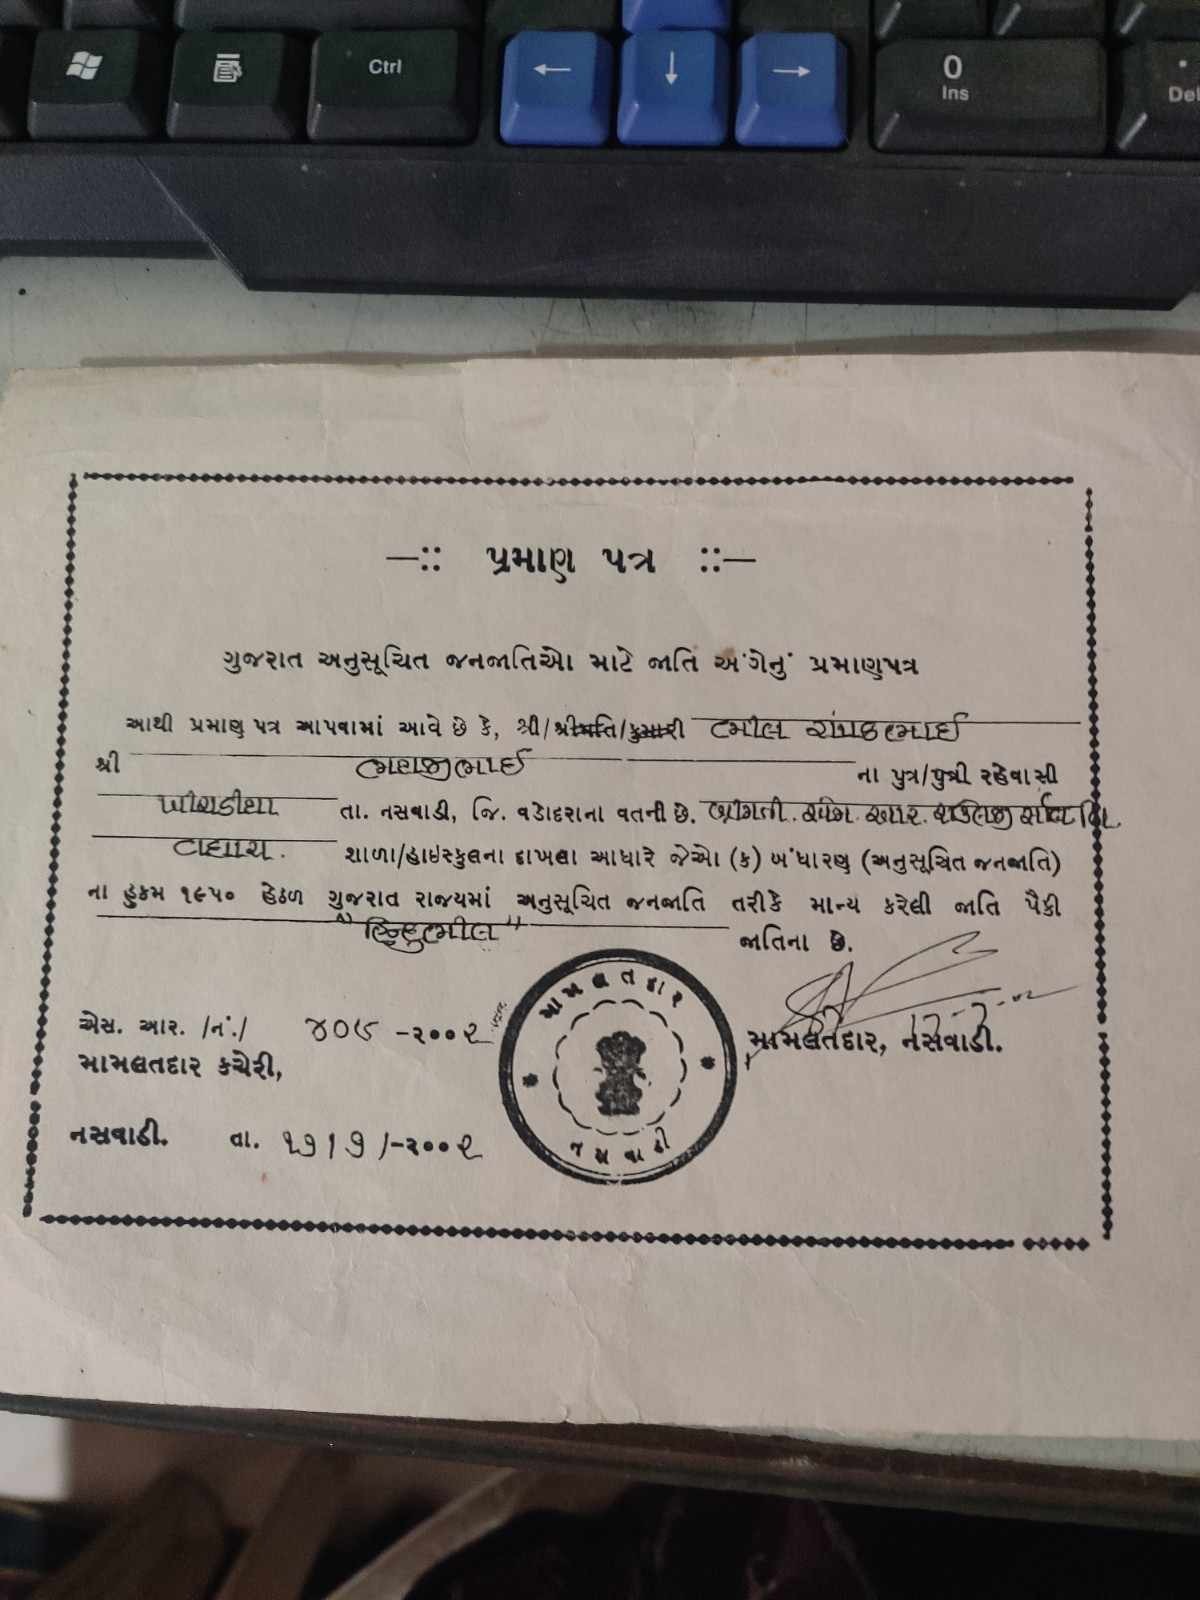 Ctrl
0
Ins
Del
—:: પ્રમાણ પત્ર ::—
ગુજરાત અનુસૂચિત જનજાતિઓ માટે જાતિ અંગેનું પ્રમાણપત્ર
આથી પ્રમાણ પત્ર આપવામાં આવે છે કે, શ્રી/શ્રીમતિ/કુમારી ભીલ ચંપકભાઈ
શ્રી ના પુત્ર/પુત્રી રહેવાસી
તા. નસવાડી, જિ. વડોદરાના વતની છે. શ્રીમતી
શાળા/હાઇસ્કુલના દાખલા આધારે જેઓ (ક) બંધારણ (અનુસૂચિત જનજાતિ)
ના હુકમ ૧૯૫૦ હેઠળ ગુજરાત રાજ્યમાં અનુસૂચિત જનજાતિ તરીકે માન્ય કરેલી જાતિ પૈકી
"હિન્દુભીલ" જાતિના છે.
મામલતદાર
નસવાડી
એસ. આર. /નં./ ૪૦૯ -૨૦૦૨
મામલતદાર, નસવાડી.
મામલતદાર કચેરી,
નસવાડી. તા. ૧૭/૭/-૨૦૦૨